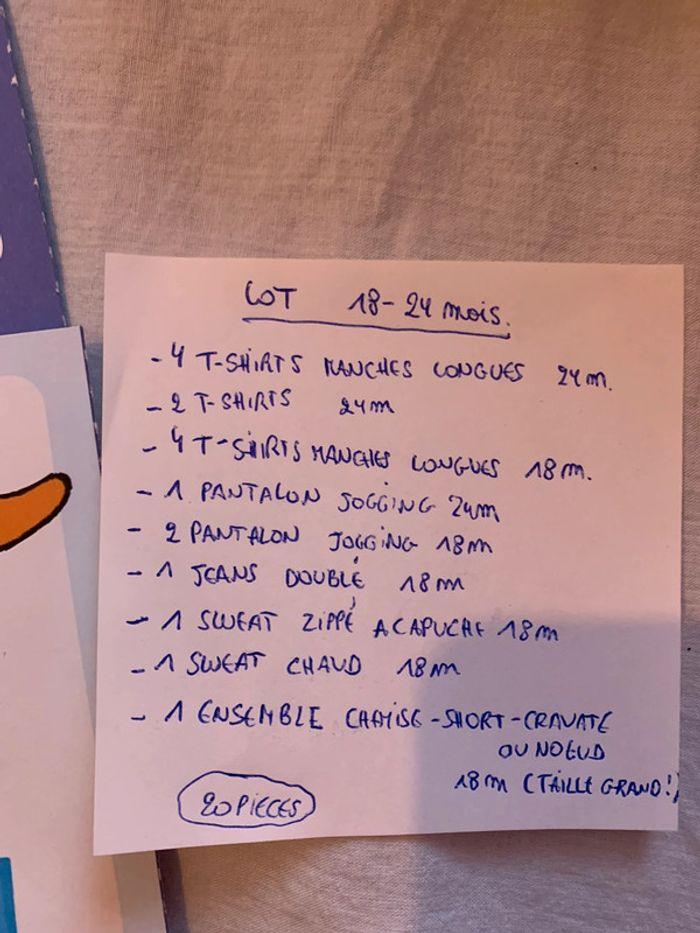 LOT 18-24 mois.
- 4 T-SHIRTS MANCHES LONGUES 24m.
- 2 T-SHIRTS 24m
- 4 T-SHIRTS MANCHES LONGUES 18m.
- 1 PANTALON JOGGING 24m
- 2 PANTALON JOGGING 18m
- 1 JEANS DOUBLÉ 18m
- 1 SWEAT ZIPPÉ A CAPUCHE 18m
- 1 SWEAT CHAUD 18m
- 1 ENSEMBLE CHEMISE-SHORT-CRAVATE
OU NOEUD
18m (TAILLE GRAND!)
20 PIECES